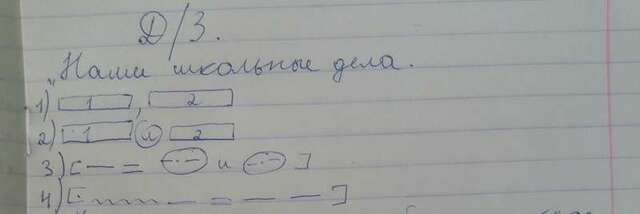 Д/З.
"Наши школьные дела.
1) 1 , 2
2) 1 и 2
3) [— = –·– и –·–]
4) [